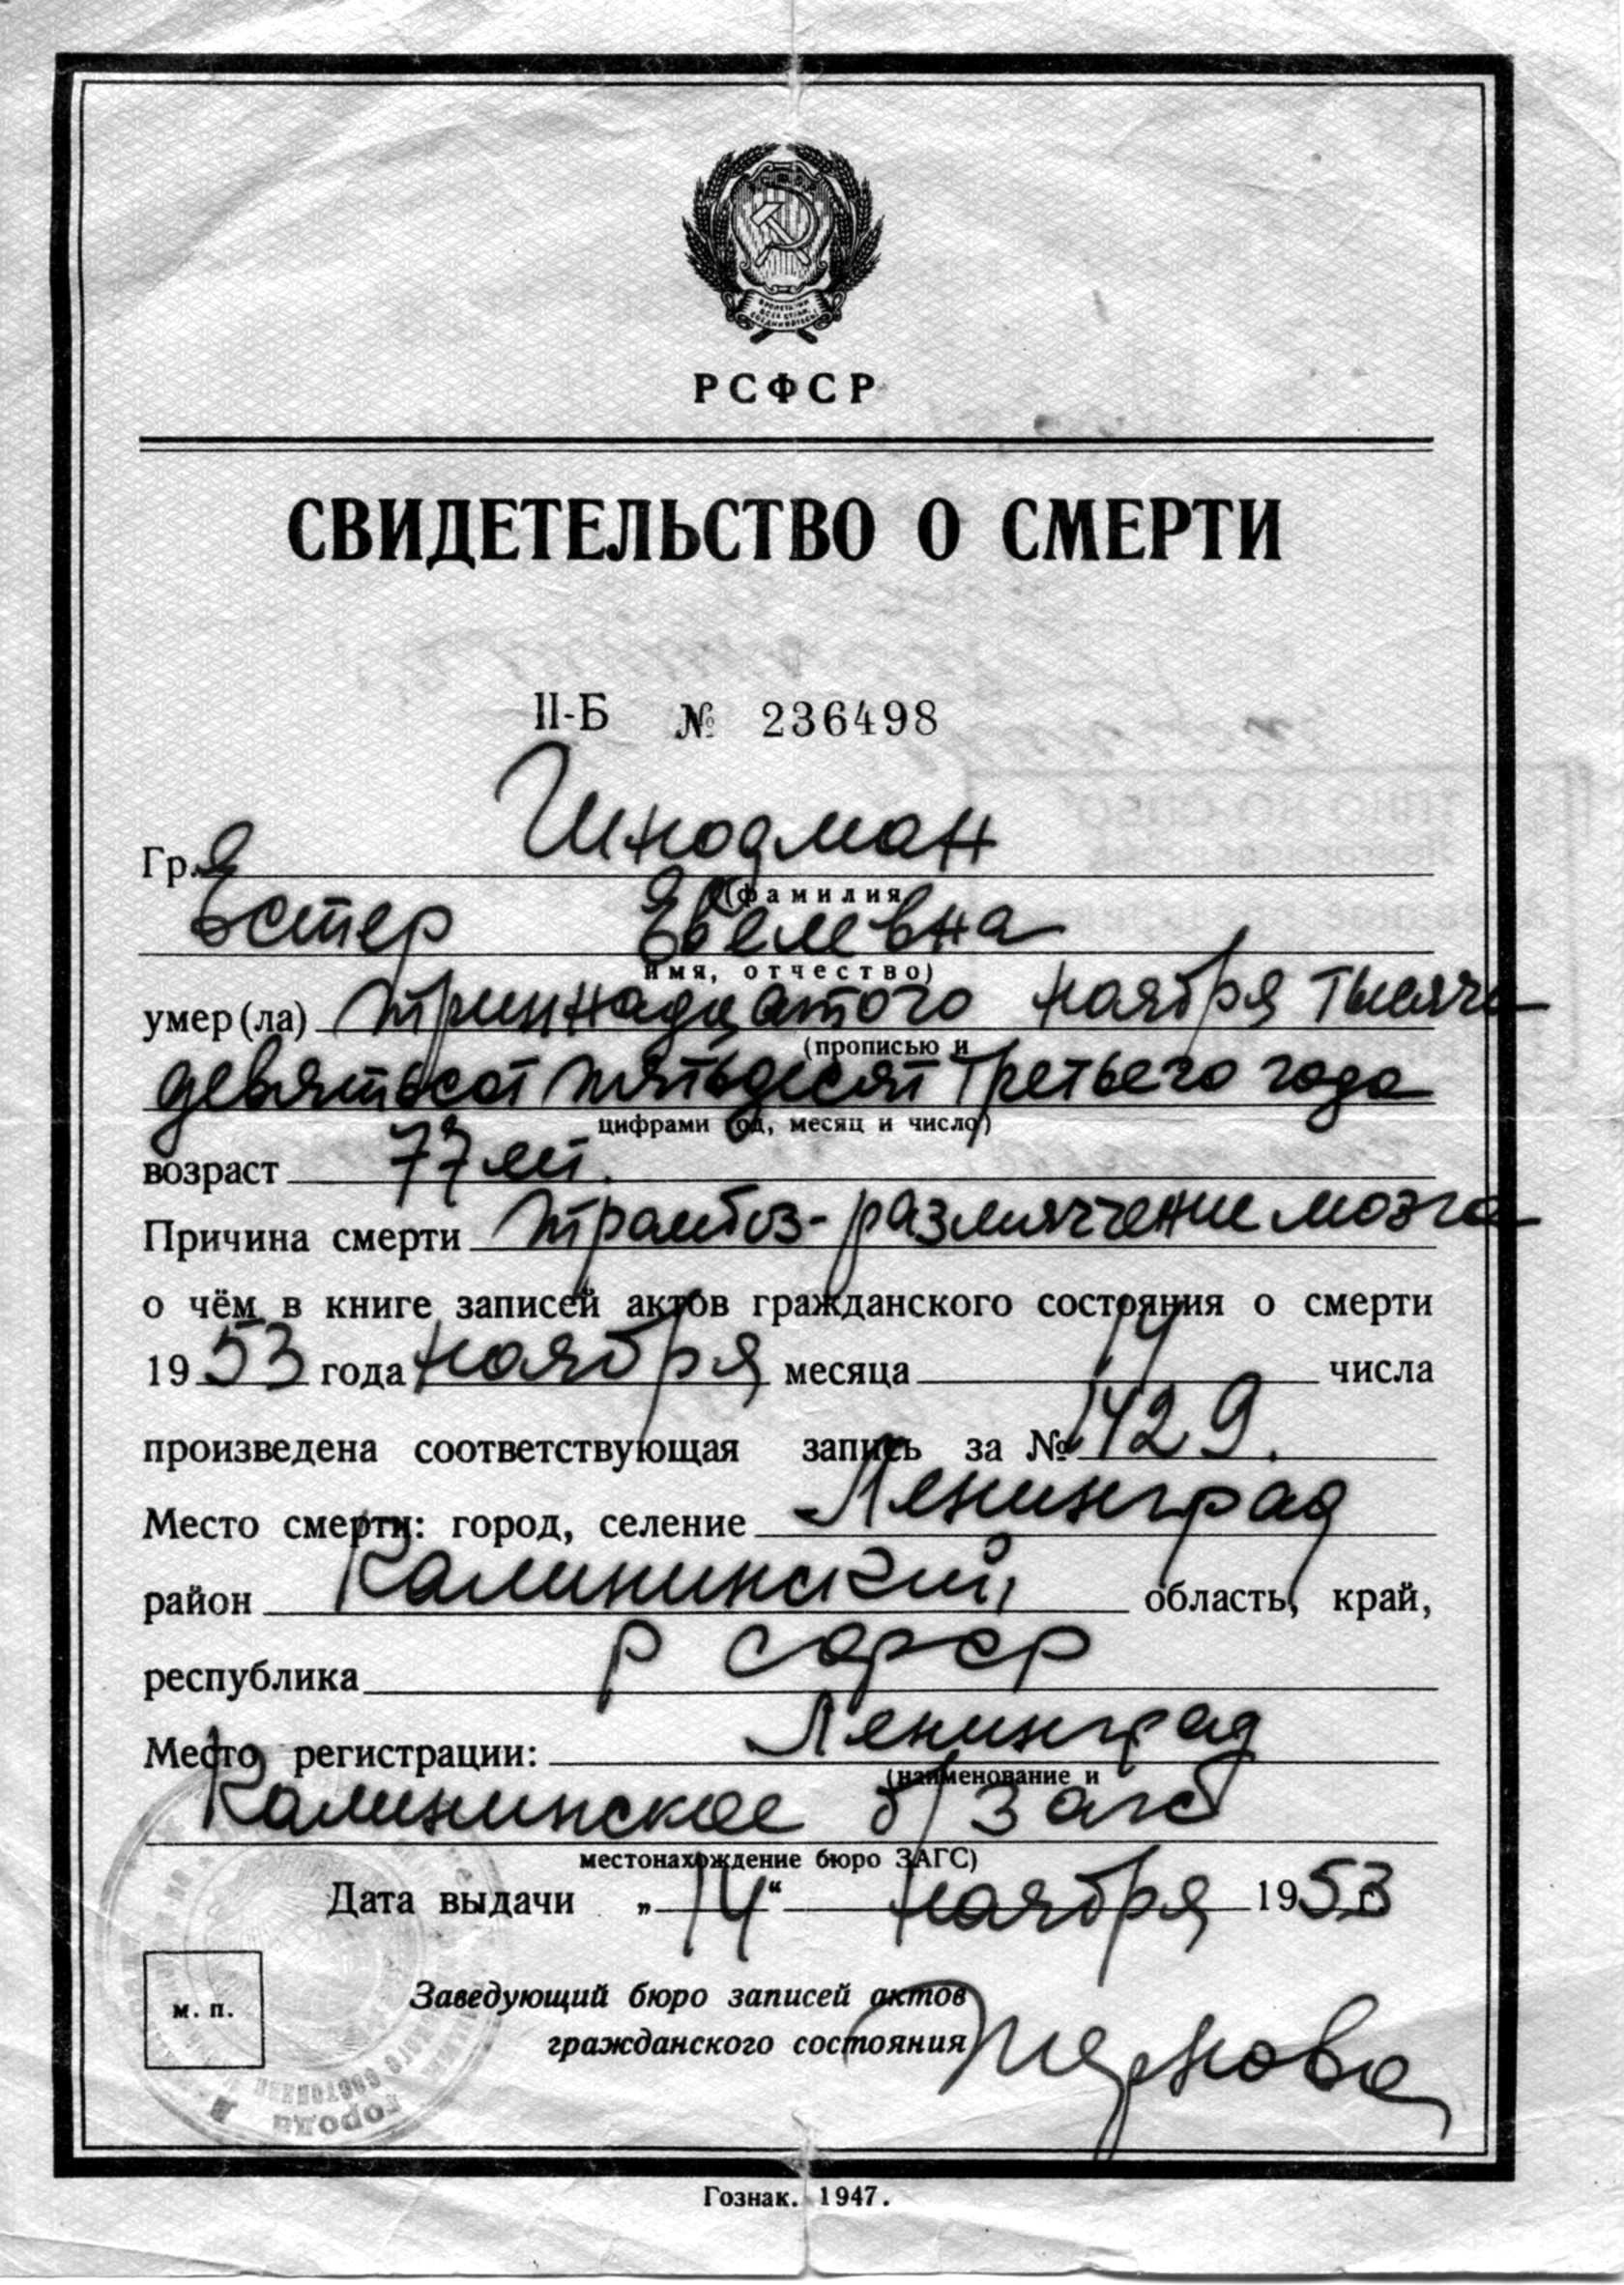 РСФСР
СВИДЕТЕЛЬСТВО О СМЕРТИ
II-Б № 236498
Гр. Шнодман
(фамилия
Естер
имя, отчество)
умер(ла) тринадцатого ноября тысяча
(прописью и
девятьсот пятьдесят третьего года
цифрами год, месяц и число)
возраст 77 лет.
Причина смерти тромбоз-размягчение мозга
о чём в книге записей актов гражданского состояния о смерти
1953 года ноября месяца 14 числа
произведена соответствующая запись за № 1429.
Место смерти: город, селение Ленинград
район Калининский, область, край,
республика РСФСР
Место регистрации: Ленинград
(наименование и
Калининское б/Загс
местонахождение бюро ЗАГС)
Дата выдачи „14“ ноября 1953
м. п.
Заведующий бюро записей актов
гражданского состояния
города
Гознак. 1947.